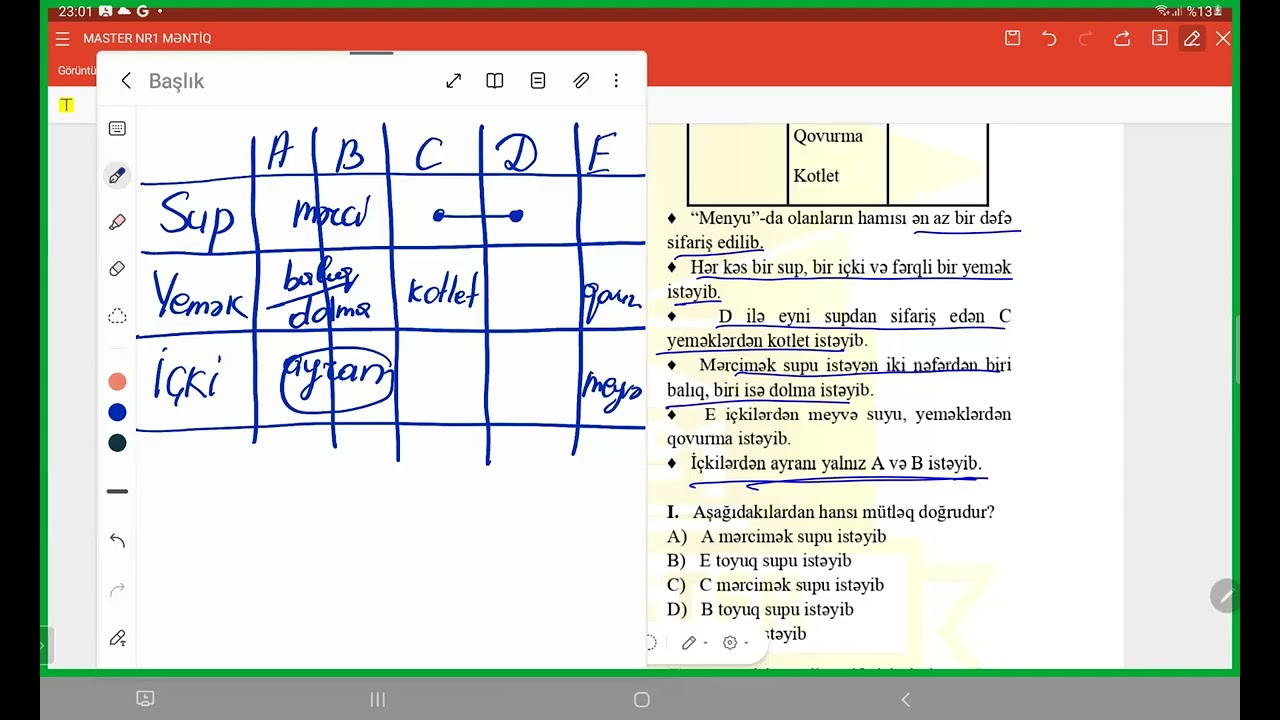 23:01
%13
MASTER NR1 MƏNTİQ
3
Görüntü
Başlık
T
A B C D E
Sup mərci
Yemək balıq dolma kotlet qovur
İÇKİ ayran meyvə
Qovurma
Kotlet
♦ “Menyu”-da olanların hamısı ən az bir dəfə
sifariş edilib.
♦ Hər kəs bir sup, bir içki və fərqli bir yemək
istəyib.
♦ D ilə eyni supdan sifariş edən C
yeməklərdən kotlet istəyib.
♦ Mərcimək supu istəyən iki nəfərdən biri
balıq, biri isə dolma istəyib.
♦ E içkilərdən meyvə suyu, yeməklərdən
qovurma istəyib.
♦ İçkilərdən ayranı yalnız A və B istəyib.
I. Aşağıdakılardan hansı mütləq doğrudur?
A) A mərcimək supu istəyib
B) E toyuq supu istəyib
C) C mərcimək supu istəyib
D) B toyuq supu istəyib
stəyib